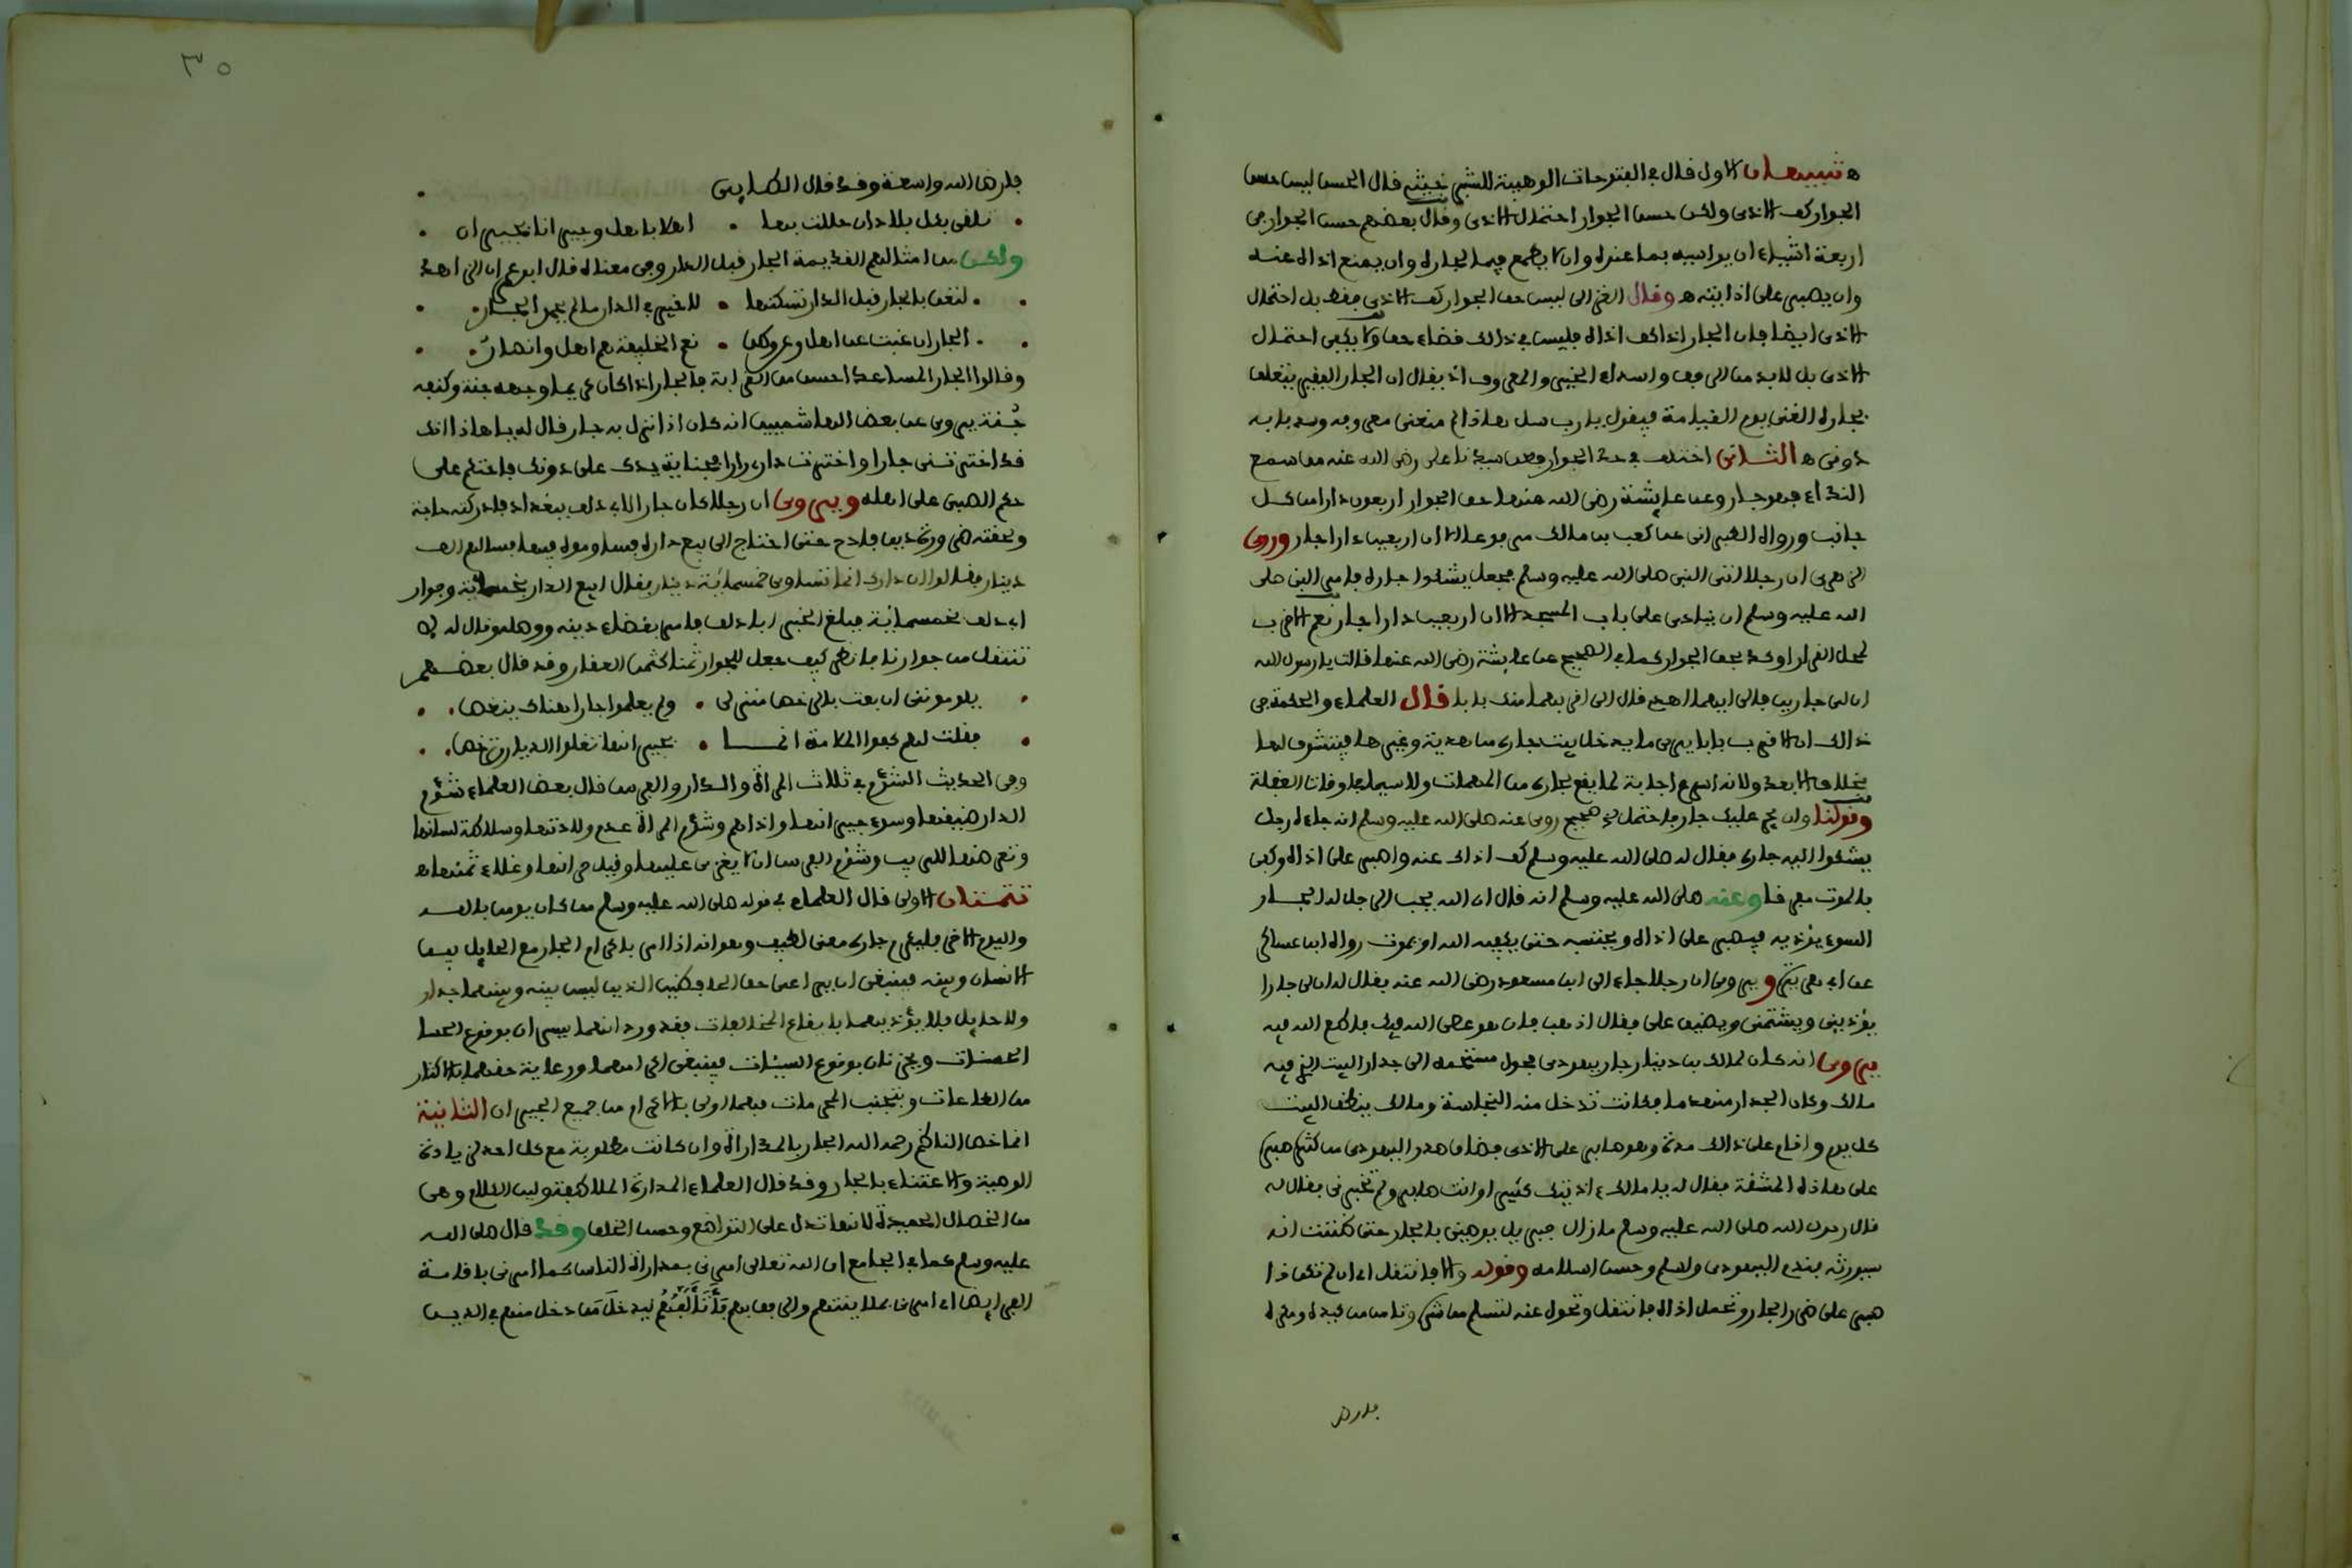 ه تنبيهان الاول قال في الفتوحات الوهبية للشبرخيتي قال الحسن ليس حسن
الجوار كف الاذى ولكن حسن الجوار احتمال الاذى وقال بعضهم حسن الجوار في
اربعة اشياء ان يواسيه بما عنده وان لا يطمع فيما لجاره وان يمنع اذاه عنه
وان يصبر على اذايته ه وقال الغزالي ليس حق الجوار كف الاذى فقط بل احتمال
الاذى ايضا فان الجار اذا كف اذاه فليس في ذالك قضاء حق ولا يكفي احتمال
الاذى بل لابد من الرفق واسداء الخير والمعروف اذ يقال ان الجار الفقير يتعلق
بجاره الغني يوم القيامة فيقول يا رب سل هاذا لم منعني معروفه وسد بابه
دوني ه الثاني اختلف في حد الجوار فعن سيدنا علي رضي الله عنه من سمع
النداء فهو جار وعن عايشة رضي الله عنها حق الجوار اربعون دارا من كل
جانب ورواه الطبراني عن كعب بن مالك مرفوعا الا ان اربعين دارا جار وروى
الزهري ان رجلا اتى النبي صلى الله عليه وسلم فجعل يشكوا جاره فامر النبي صلى
الله عليه وسلم ان ينادى على باب المسجد الا ان اربعين دارا جار نعم الاقرب
لمحل القرار اوكد بحق الجوار كما في الصحيح عن عايشة رضي الله عنها قالت يا رسول الله
ان لي جارين فالى ايهما اهدي قال الى اقربهما منك بابا قال العلماء والحكمة في
ذالك ان الاقرب بابا يرى ما يدخل بيت جاره من هدية وغيرها فيتشوف لها
بخلاف الابعد ولانه اسرع اجابة لما يقع بجاره من المهمات ولا سيما في اوقات الغفلة
وقولنا وان يجر عليك جار فاحتمل صحيح روي عنه صلى الله عليه وسلم انه جاءه رجل
يشكوا اليه جاره فقال له صلى الله عليه وسلم كف اذاك عنه واصبر على اذاه وكفى
بالموت مفرقا وعنه صلى الله عليه وسلم انه قال ان الله يحب الرجل له الجار
السوء يؤذيه فيصبر على اذاه ويحتسبه حتى يكفيه الله او بموت رواه ابن عساكر
عن ابي هريرة ويروى ان رجلا جاء الى ابن مسعود رضي الله عنه فقال له ان لي جارا
يؤذيني ويشتمني ويضيق علي فقال اذهب فان هو عصى الله فيك فاطع الله فيه
يروى انه كان لمالك بن دينار جار يهودي فحول مستحمه الى جدار البيت الذي فيه
مالك وكان الجدار متهدما فكانت تدخل منه النجاسة ومالك ينظف البيت
كل يوم واقام على ذالك مدة وهو صابر على الاذى فضاق صدر اليهودي من كثرة صبره
على هاذه المشقة فقال له يا مالك ءاذيتك كثيرا وانت صابر ولم تخبرني فقال له
قال رسول الله صلى الله عليه وسلم مازال جبريل يوصيني بالجار حتى ظننت انه
سيورثه فندم اليهودي واسلم وحسن اسلامه وقوله والا فانتقل اي ان لم تكن ذا
صبر على ضرر الجار وتحمل اذاه فانتقل وتحول عنه لتسلم من شره وتامن من كيده ومكره
فارض
٣٥
فارض الله واسعة وقد قال
تلقى بكل بلاد ان حللت بها • اهلا باهل وجيرانا بجيران
ولكن من امثالهم القديمة الجار قبل الدار وفي معناه قال
• • لتعن بالجار قبل الدار تسكنها • لا خير في الدار ما لم يحمد الجار •
• • الجار ان غبت عن اهل وعن وطن • نعم الخليفة هم اهل وانصار •
وقالوا الجار المساعد احسن من القرابة فالجار اذا كان كريما وجهه جنة وكنفه
جُنة يروى عن بعض الهاشميين انه كان اذا نزل به جار قال له يا هاذا انك
قد اخترتني جارا واخترت داري دارا فجناية يدك علي دونك فاحتكم علي
حكم الصبي على اهله ويروى ان رجلا كان جارا لابي دلف ببغداد فادركته حاجة
وركبه دين فادح حتى احتاج الى بيع داره فساوموه فيها فسالهم الف
دينار فقالوا ان دارك انما تساوي خمسمائة دينار فقال ابيع الدار بخمسمائة وجوار
ابي دلف بخمسمائة فبلغ الخبر ابا دلف فامر بقضاء دينه ووصله وقال له لا
تنتقل من جوارنا فانظر كيف جعل للجوار ثمنا كثمن العقار وقد قال بعضهم
• يلومونني ان بعت بالرخص منزلي • ولم يعلموا جارا هناك ينغص •
• فقلت لهم كفوا الملامة انما • بجيرانها تغلوا الديار وترخص •
وفي الحديث الشؤم في ثلاث المراة والدار والفرس قال بعض العلماء شؤم
الدار ضيقها وسوء جيرانها واذاهم وشؤم المراة عدم ولادتها وسلاطة لسانها
وتعرضها للريب وشؤم الفرس ان لا يغزى عليها وقيل حرانها وغلاء ثمنها ه
تتمتان الاولى قال العلماء في قوله صلى الله عليه وسلم من كان يومن بالله
واليوم الاخر فليكرم جاره معنى لطيف وهو انه اذا امر باكرام الجار مع الحايل بين
الانسان وبينه فينبغي ان يراعى حق الحافظين الذين ليس بينه وبينهما جدار
ولا حايل فلا يؤذيهما بايقاع المخالفات فقد ورد انهما يسران بوقوع الحسا
الحسنات ويحزنان بوقوع السيئات فينبغي اكرامهما ورعاية حقهما بالاكثار
من الطاعات وتجنب المحرمات فهما اولى بالاكرام من جميع الجيران الثانية
انما خص الناظم رحمه الله الجار بالمداراة وان كانت مطلوبة مع كل احد لزيادة
الوصية والاعتناء بالجار وقد قال العلماء المداراة الملاطفة ولين الكلام وهي
من الخصال الحميدة لانها تدل على التواضع وحسن الخلق وقد قال صلى الله
عليه وسلم كما في الجامع ان الله تعالى امرني بمداراة الناس كما امرني باقامة
الفرايض اي امرني بملاينتهم والرفق بهم وتألفهم ليدخل من دخل منهم في الدين